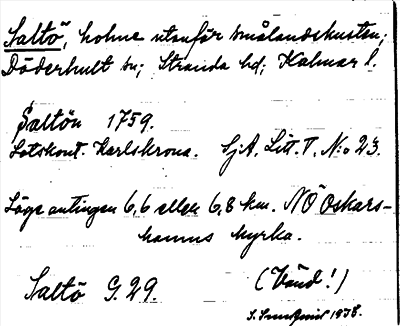 Saltö, holme utanför smålandskusten;
Döderhult sn; Stranda hd; Kalmar l.
Saltön 1759.
Lotskont. Karlskrona. SjA, Litt. T, N:o 23.
Läge antingen 6,6 eller 6,8 km. NÖ Oskars-
hamns kyrka.
Saltö G. 29. (Vänd!)
1938.